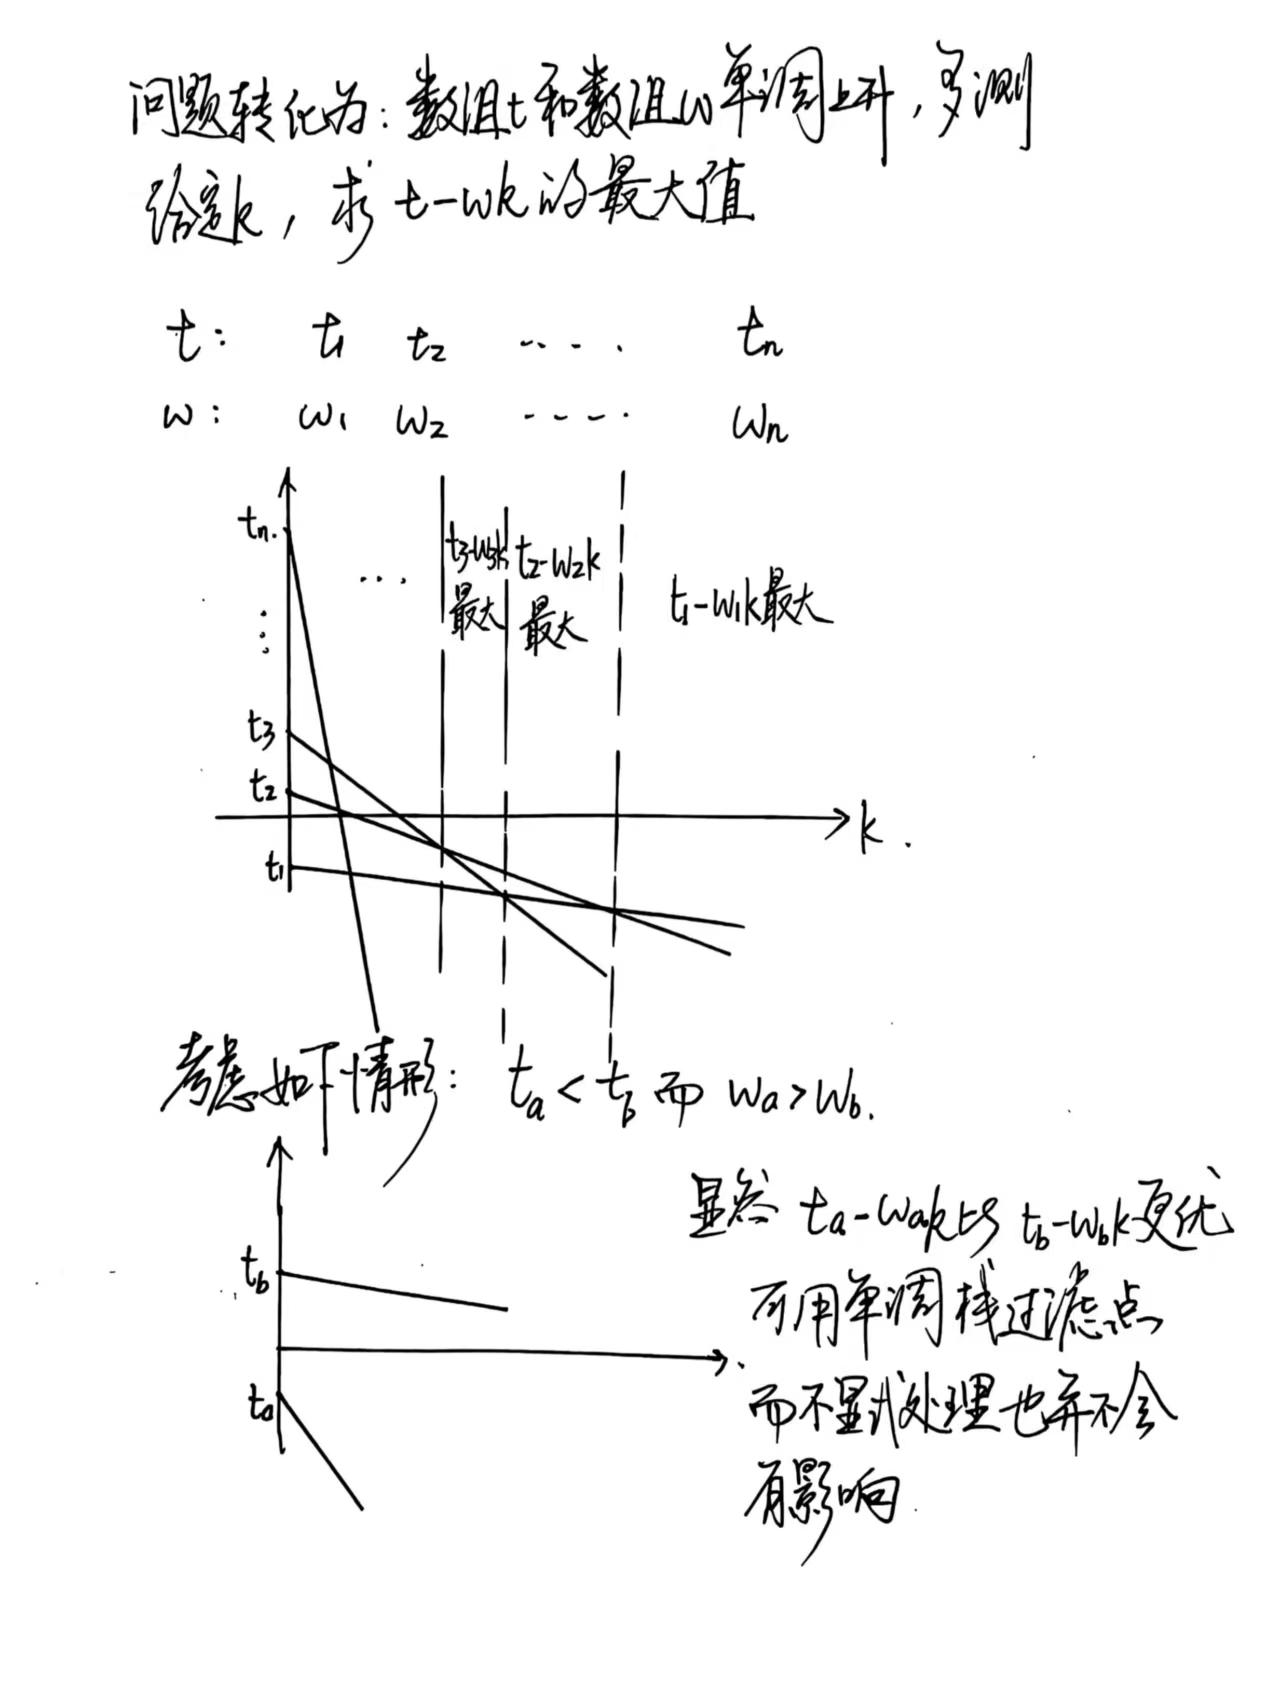 问题转化为：数组t和数组w单调上升，多测
给定k，求 t-wk的最大值
t： t₁ t₂ ····. tₙ
w： w₁ w₂ ----· wₙ
tₙ.
···
t₃-w₃k
最大
t₂-w₂k
最大
t₁-w₁k最大
⋮
t₃
t₂
t₁
k.
考虑如下情形： tₐ < t_b 而 wₐ>w_b.
t_b
tₐ
显然 tₐ-wₐk比 t_b-w_bk更优
可用单调栈过滤点
而不显式处理也并不会
有影响.